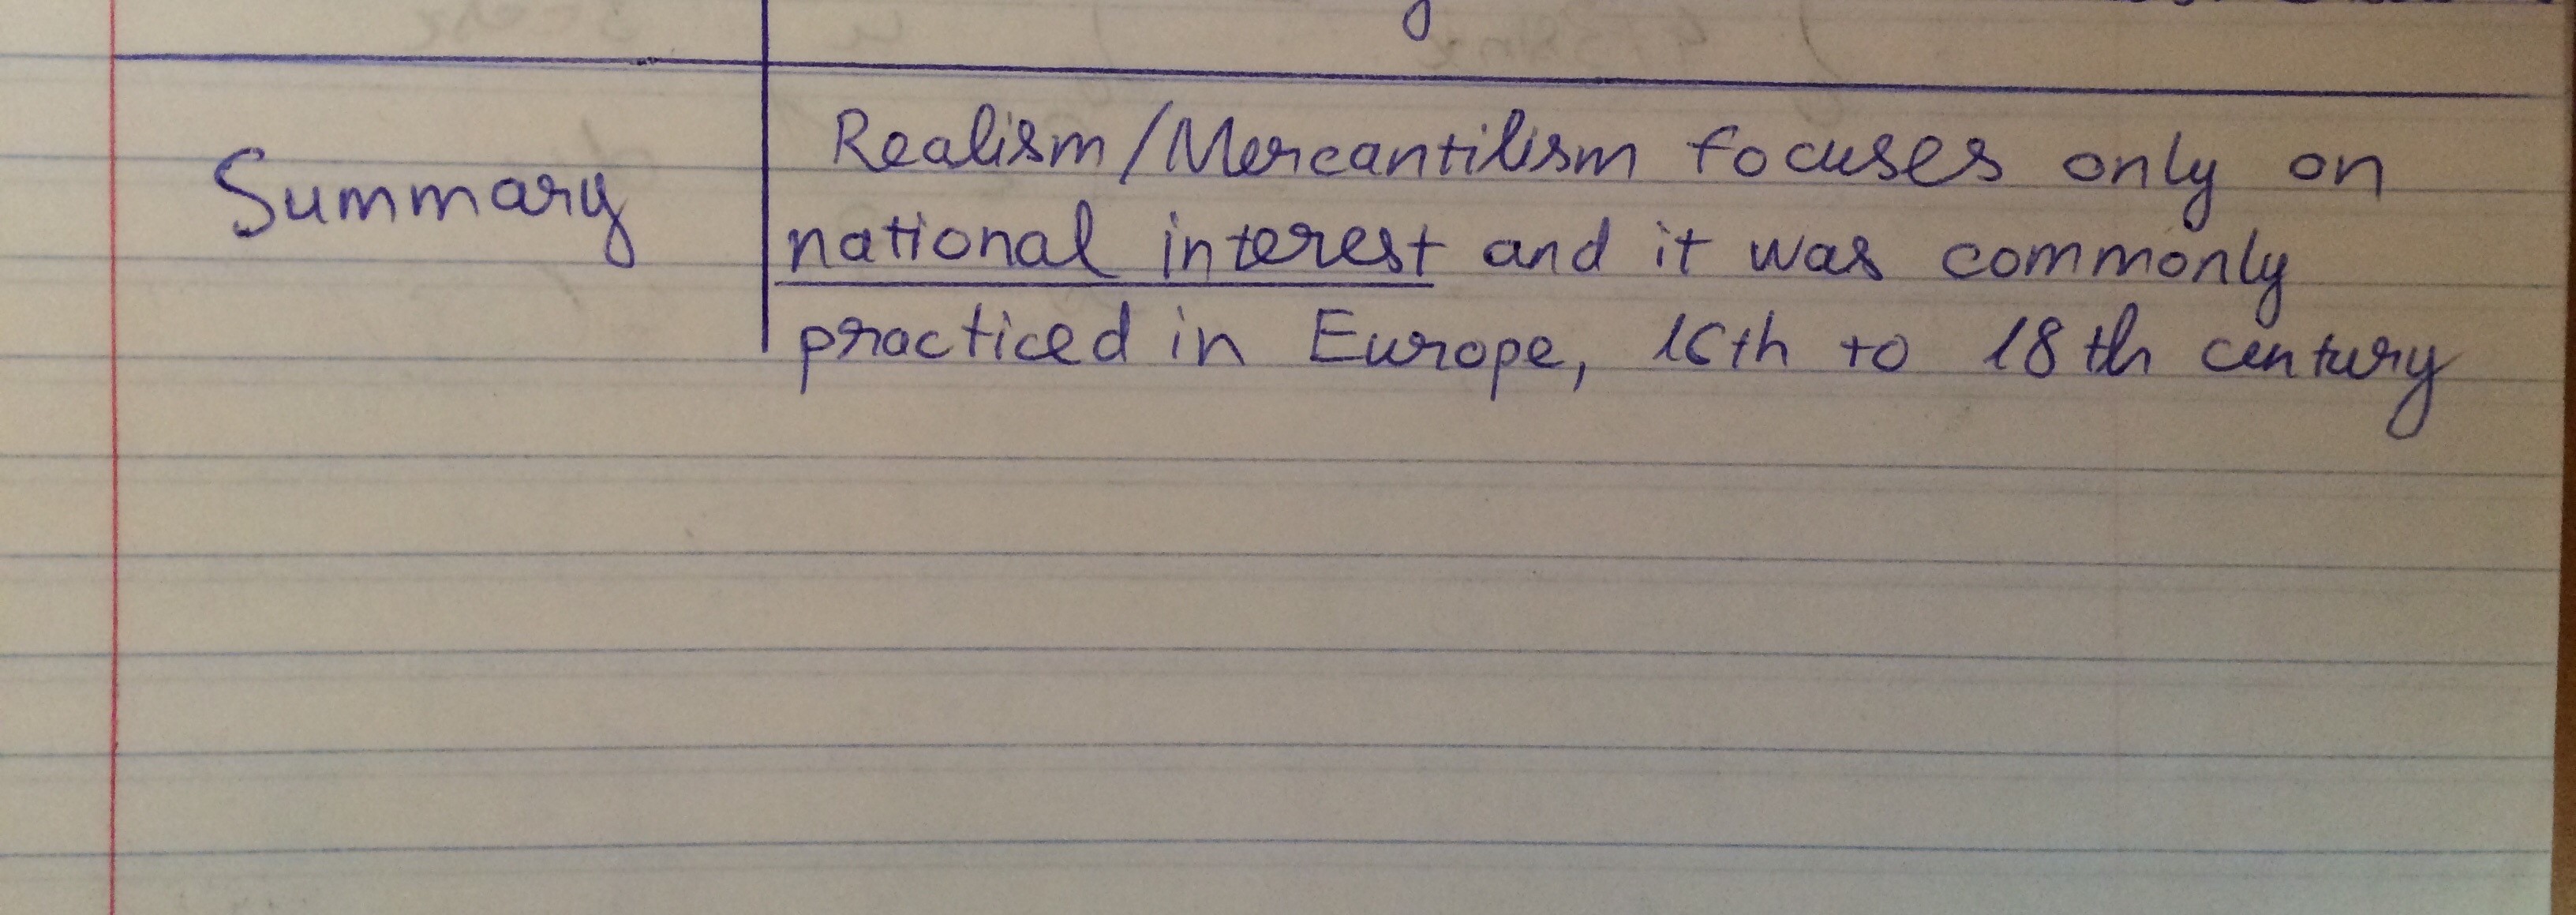 Summary
Realism/Mercantilism focuses only on
national interest and it was commonly
practiced in Europe, 16th to 18th century